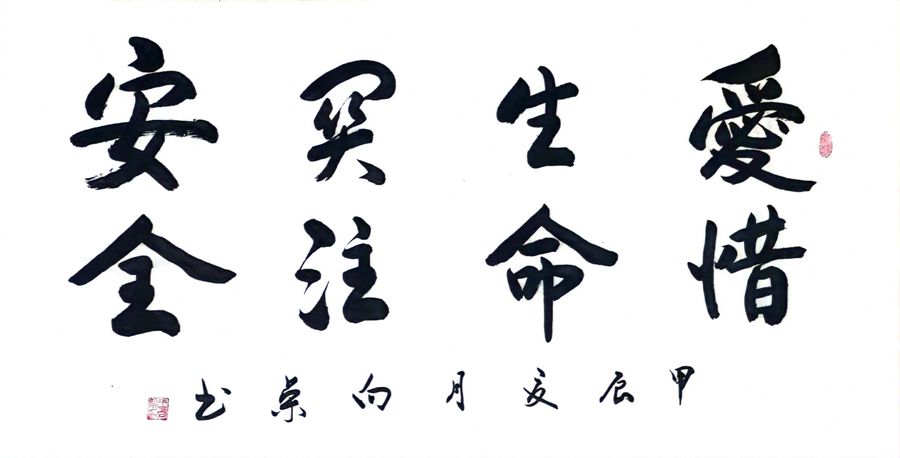 愛惜
生命
関注
安全
甲辰夏月向荣书